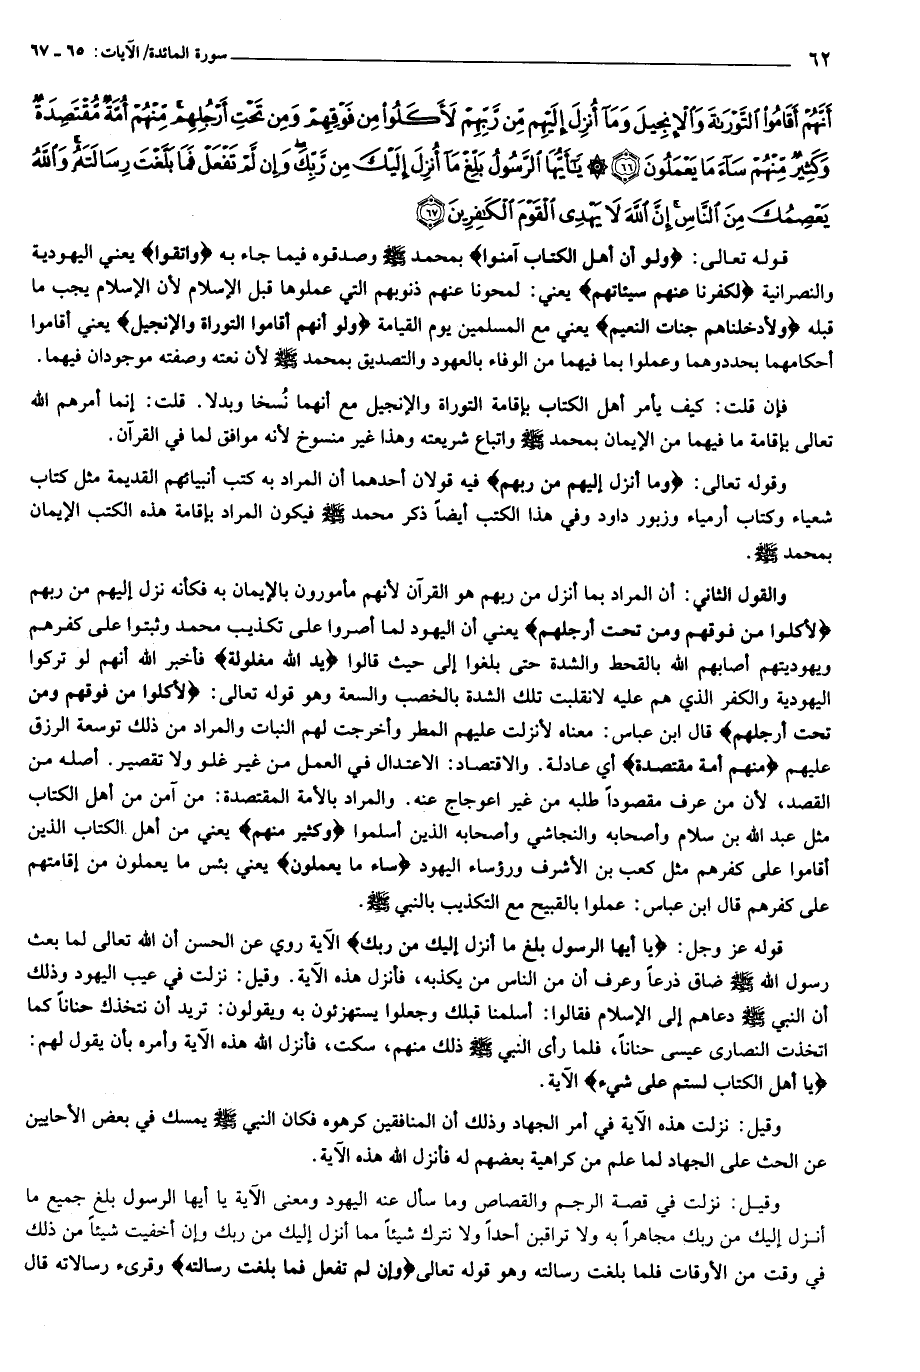 ٦٢ سورة المائدة/ الآيات: ٦٥ ـ ٦٧
أَنَّهُمْ أَقَامُوا۟ ٱلتَّوْرَىٰةَ وَٱلْإِنجِيلَ وَمَآ أُنزِلَ إِلَيْهِم مِّن رَّبِّهِمْ لَأَكَلُوا۟ مِن فَوْقِهِمْ وَمِن تَحْتِ أَرْجُلِهِم ۚ مِّنْهُمْ أُمَّةٌ مُّقْتَصِدَةٌ ۖ
وَكَثِيرٌ مِّنْهُمْ سَآءَ مَا يَعْمَلُونَ ﴿٦٦﴾ ۞ يَـٰٓأَيُّهَا ٱلرَّسُولُ بَلِّغْ مَآ أُنزِلَ إِلَيْكَ مِن رَّبِّكَ ۖ وَإِن لَّمْ تَفْعَلْ فَمَا بَلَّغْتَ رِسَالَتَهُۥ ۚ وَٱللَّهُ
يَعْصِمُكَ مِنَ ٱلنَّاسِ ۗ إِنَّ ٱللَّهَ لَا يَهْدِى ٱلْقَوْمَ ٱلْكَـٰفِرِينَ ﴿٦٧﴾
قوله تعالى: ﴿ولو أن أهل الكتاب آمنوا﴾ بمحمد ﷺ وصدقوه فيما جاء به ﴿واتقوا﴾ يعني اليهودية
والنصرانية ﴿لكفرنا عنهم سيئاتهم﴾ يعني: لمحونا عنهم ذنوبهم التي عملوها قبل الإسلام لأن الإسلام يجب ما
قبله ﴿ولأدخلناهم جنات النعيم﴾ يعني مع المسلمين يوم القيامة ﴿ولو أنهم أقاموا التوراة والإنجيل﴾ يعني أقاموا
أحكامهما بحددوهما وعملوا بما فيهما من الوفاء بالعهود والتصديق بمحمد ﷺ لأن نعته وصفته موجودان فيهما.
فإن قلت: كيف يأمر أهل الكتاب بإقامة التوراة والإنجيل مع أنهما نُسخا وبدلا. قلت: إنما أمرهم الله
تعالى بإقامة ما فيهما من الإيمان بمحمد ﷺ واتباع شريعته وهذا غير منسوخ لأنه موافق لما في القرآن.
وقوله تعالى: ﴿وما أنزل إليهم من ربهم﴾ فيه قولان أحدهما أن المراد به كتب أنبيائهم القديمة مثل كتاب
شعياء وكتاب أرمياء وزبور داود وفي هذا الكتب أيضاً ذكر محمد ﷺ فيكون المراد بإقامة هذه الكتب الإيمان
بمحمد ﷺ.
والقول الثاني: أن المراد بما أنزل من ربهم هو القرآن لأنهم مأمورون بالإيمان به فكأنه نزل إليهم من ربهم
﴿لأكلوا من فوقهم ومن تحت أرجلهم﴾ يعني أن اليهود لما أصروا على تكذيب محمد وثبتوا على كفرهم
ويهوديتهم أصابهم الله بالقحط والشدة حتى بلغوا إلى حيث قالوا ﴿يد الله مغلولة﴾ فأخبر الله أنهم لو تركوا
اليهودية والكفر الذي هم عليه لانقلبت تلك الشدة بالخصب والسعة وهو قوله تعالى: ﴿لأكلوا من فوقهم ومن
تحت أرجلهم﴾ قال ابن عباس: معناه لأنزلت عليهم المطر وأخرجت لهم النبات والمراد من ذلك توسعة الرزق
عليهم ﴿منهم أمة مقتصدة﴾ أي عادلة. والاقتصاد: الاعتدال في العمل من غير غلو ولا تقصير. أصله من
القصد، لأن من عرف مقصوداً طلبه من غير اعوجاج عنه. والمراد بالأمة المقتصدة: من آمن من أهل الكتاب
مثل عبد الله بن سلام وأصحابه والنجاشي وأصحابه الذين أسلموا ﴿وكثير منهم﴾ يعني من أهل الكتاب الذين
أقاموا على كفرهم مثل كعب بن الأشرف ورؤساء اليهود ﴿ساء ما يعملون﴾ يعني بئس ما يعملون من إقامتهم
على كفرهم قال ابن عباس: عملوا بالقبيح مع التكذيب بالنبي ﷺ.
قوله عز وجل: ﴿يا أيها الرسول بلغ ما أنزل إليك من ربك﴾ الآية روي عن الحسن أن الله تعالى لما بعث
رسول الله ﷺ ضاق ذرعاً وعرف أن من الناس من يكذبه، فأنزل هذه الآية. وقيل: نزلت في عيب اليهود وذلك
أن النبي ﷺ دعاهم إلى الإسلام فقالوا: أسلمنا قبلك وجعلوا يستهزئون به ويقولون: تريد أن نتخذك حناناً كما
اتخذت النصارى عيسى حناناً، فلما رأى النبي ﷺ ذلك منهم، سكت، فأنزل الله هذه الآية وأمره بأن يقول لهم:
﴿يا أهل الكتاب لستم على شيء﴾ الآية.
وقيل: نزلت هذه الآية في أمر الجهاد وذلك أن المنافقين كرهوه فكان النبي ﷺ يمسك في بعض الأحايين
عن الحث على الجهاد لما علم من كراهية بعضهم له فأنزل الله هذه الآية.
وقيل: نزلت في قصة الرجم والقصاص وما سأل عنه اليهود ومعنى الآية يا أيها الرسول بلغ جميع ما
أنزل إليك من ربك مجاهراً به ولا تراقبن أحداً ولا نترك شيئاً مما أنزل إليك من ربك وإن أخفيت شيئاً من ذلك
في وقت من الأوقات فلما بلغت رسالته وهو قوله تعالى﴿وإن لم تفعل فما بلغت رسالته﴾ وقرىء رسالاته قال